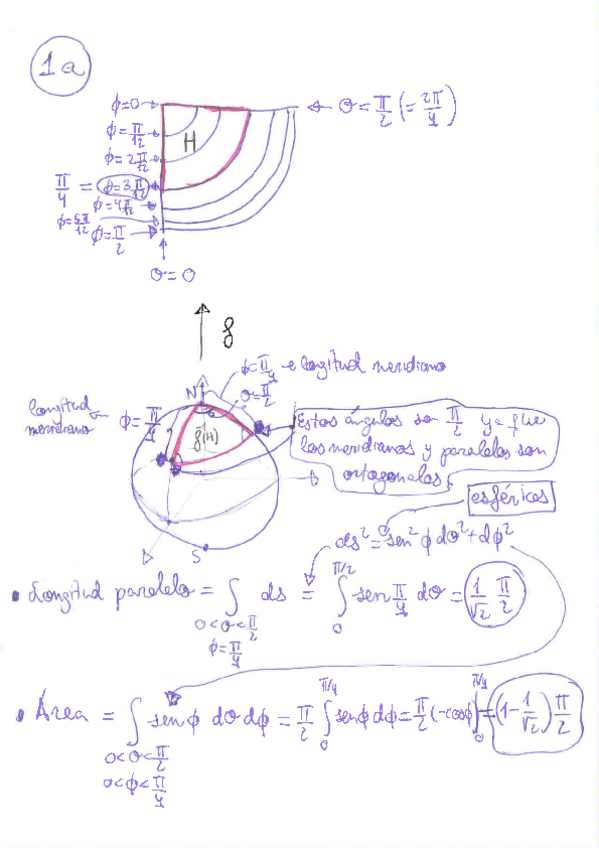 1a
φ=0
φ=π/12
φ=2π/12
π/4 = φ=3π/12
φ=4π/12
φ=5π/12
φ=π/2
H
θ=π/2 (=2π/4)
θ=0
g
φ=π/4 longitud meridiano
N
θ=π/2
longitud meridiano
φ=π/4
g⁻¹(H)
Estos ángulos son π/2 ya que
los meridianos y paralelos son
ortogonales
esféricas
S
ds²=sen²φdθ²+dφ²
• Longitud paralelo = ∫ ds = ∫ sen π/4 dθ = 1/√2 π/2
0<θ<π/2
φ=π/4
0
π/2
• Área = ∫ senφ dθdφ = π/2 ∫ senφdφ = π/2 (-cosφ) = (1-1/√2) π/2
0<θ<π/2
0<φ<π/4
0
π/4
0
π/4